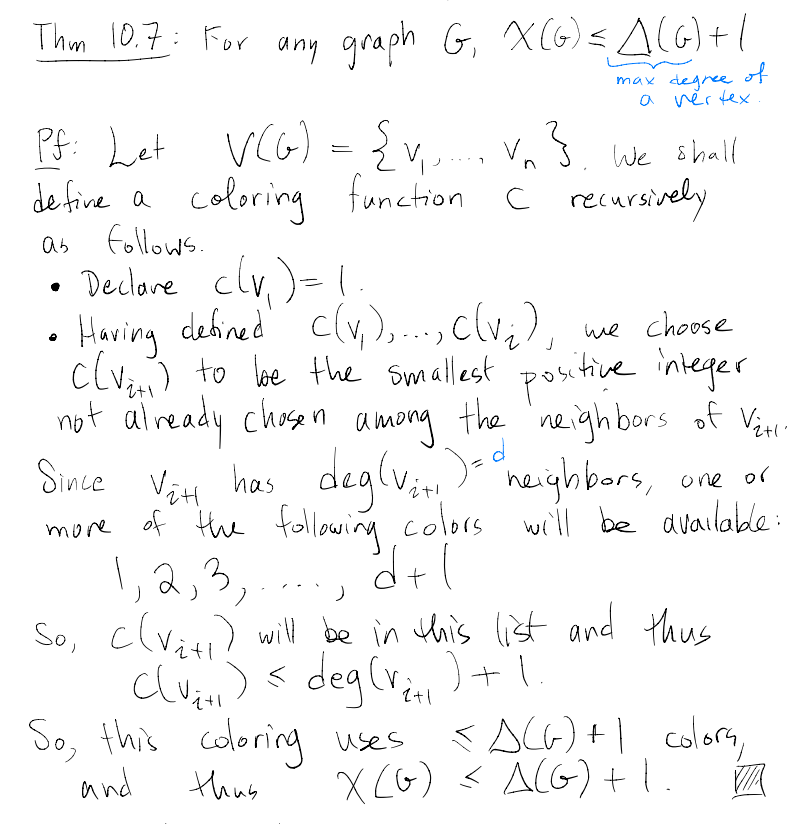 Thm 10.7: For any graph G, χ(G) ≤ Δ(G)+1
max degree of
a vertex.
Pf: Let V(G) = {v₁, ..., vₙ}. We shall
define a coloring function C recursively
as follows.
• Declare c(v₁) = 1.
• Having defined c(v₁), ..., c(vᵢ), we choose
c(vᵢ₊₁) to be the smallest positive integer
not already chosen among the neighbors of vᵢ₊₁.
Since vᵢ₊₁ has deg(vᵢ₊₁) = d neighbors, one or
more of the following colors will be available:
1, 2, 3, ...., d+1
So, c(vᵢ₊₁) will be in this list and thus
c(vᵢ₊₁) ≤ deg(vᵢ₊₁) + 1.
So, this coloring uses ≤ Δ(G)+1 colors,
and thus χ(G) ≤ Δ(G)+1.